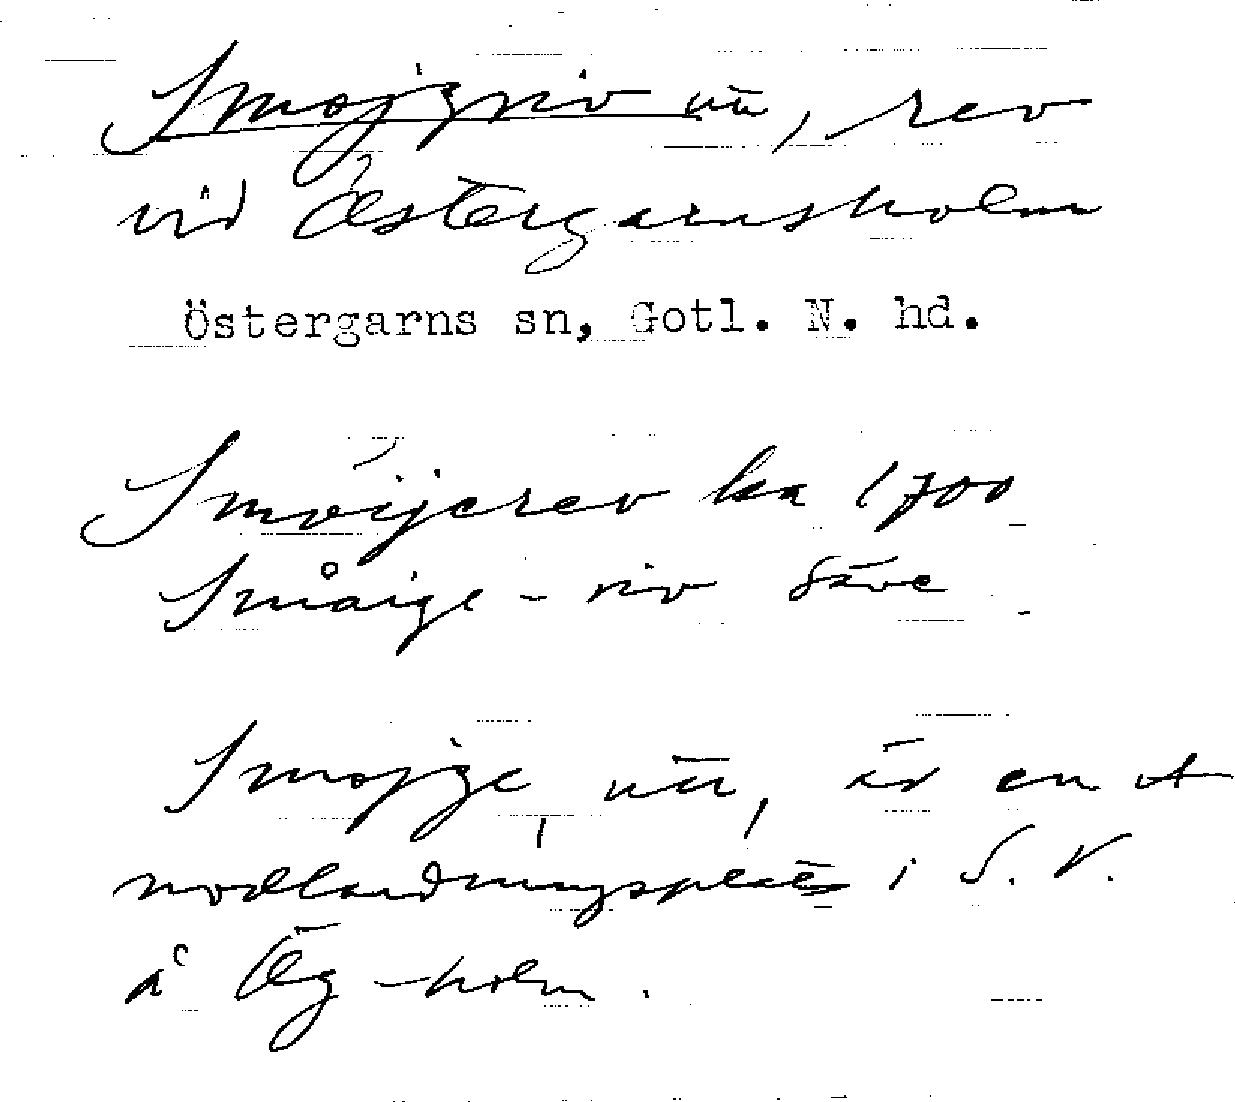 Smojgriv nu, rev
vid Östergarnsholm
Östergarns sn, Gotl. N. hd.
Smöijerev ka 1700
Småige-riv Säve
Smojge när, är en
nödlandningsplats i S. V.
å Ög-holm.